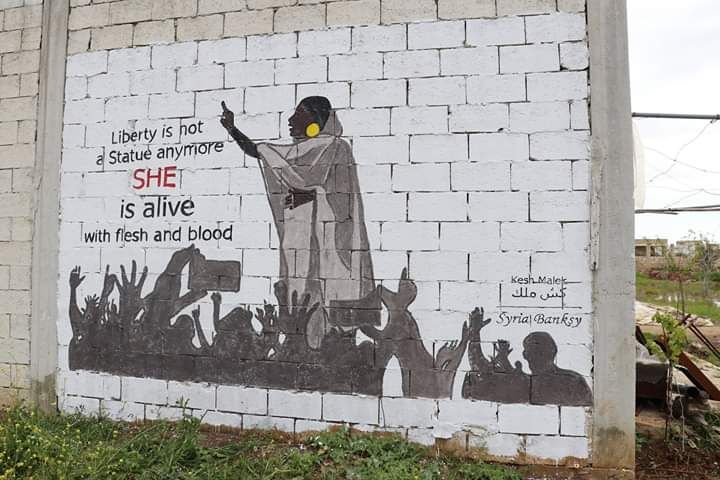 Liberty is not
a Statue anymore
SHE
is alive
with flesh and blood
Kesh Malek
كش ملك
Syria Banksy